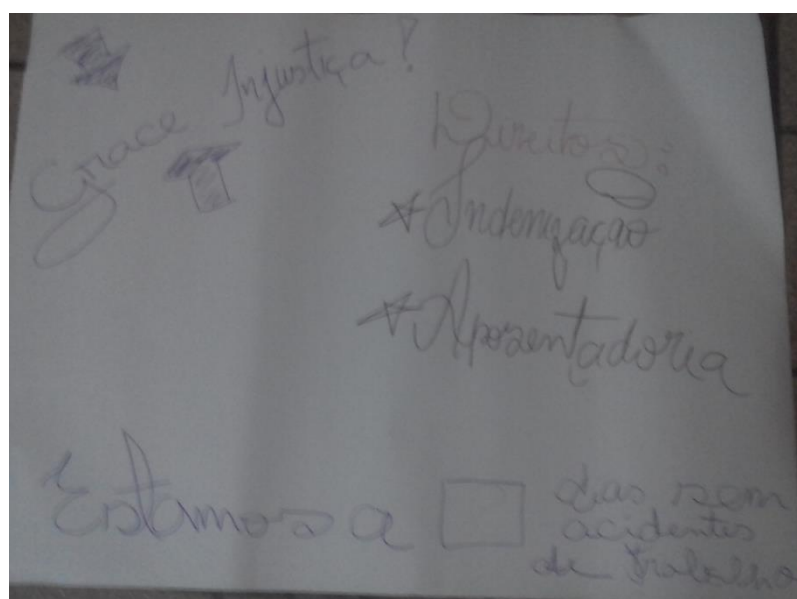 Grace Injustiça!
Direitos:
Indenização
Aposentadoria
Estamos a
dias sem
acidentes
de trabalho